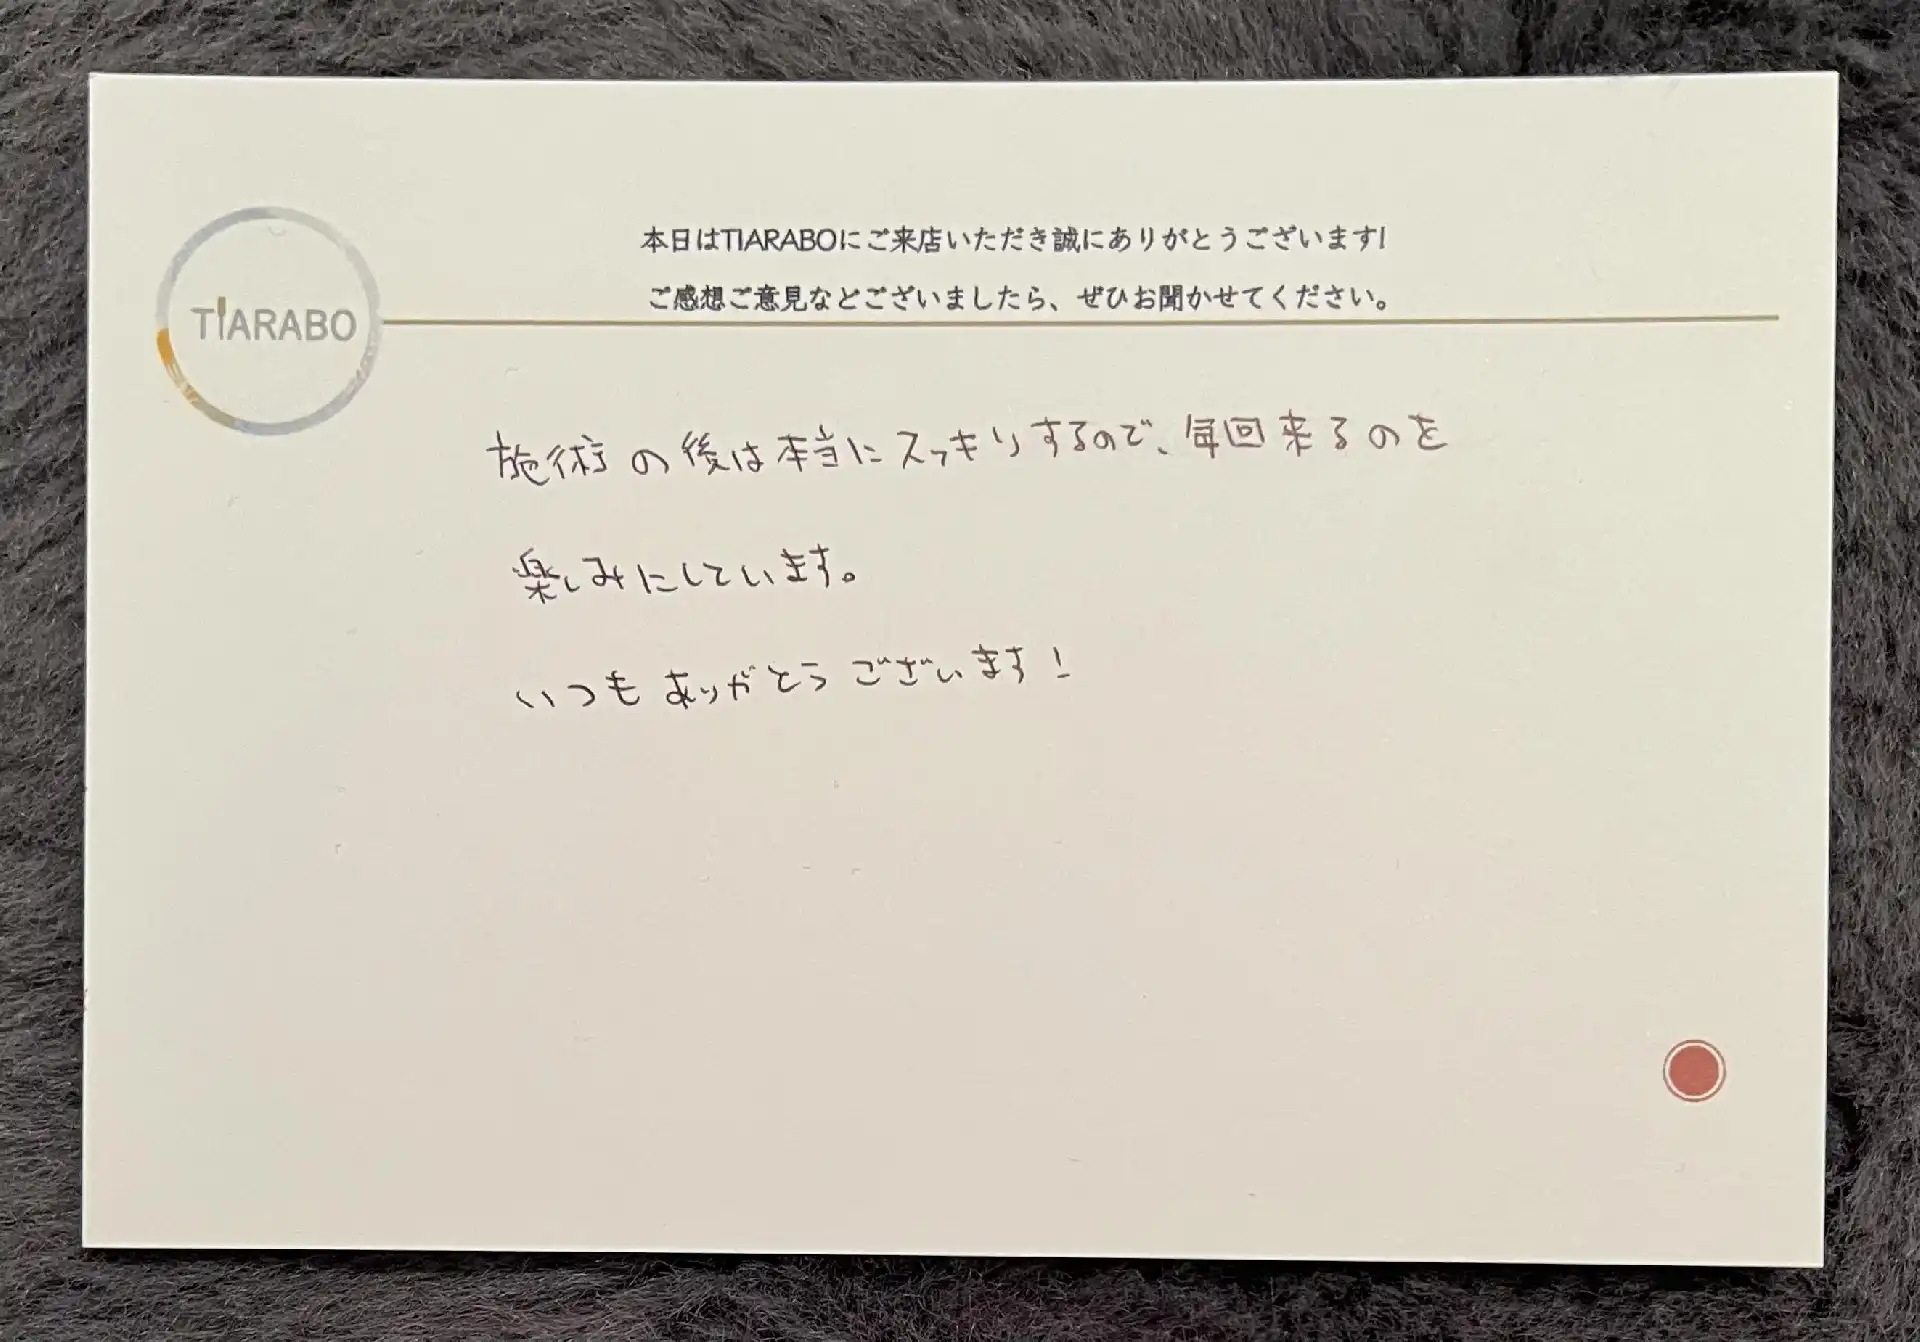 本日はTIARABOにご来店いただき誠にありがとうございます!
ご感想ご意見などございましたら、ぜひお聞かせてください。
TIARABO
施術の後は本当にスッキリするので、毎回来るのを
楽しみにしています。
いつもありがとうございます!